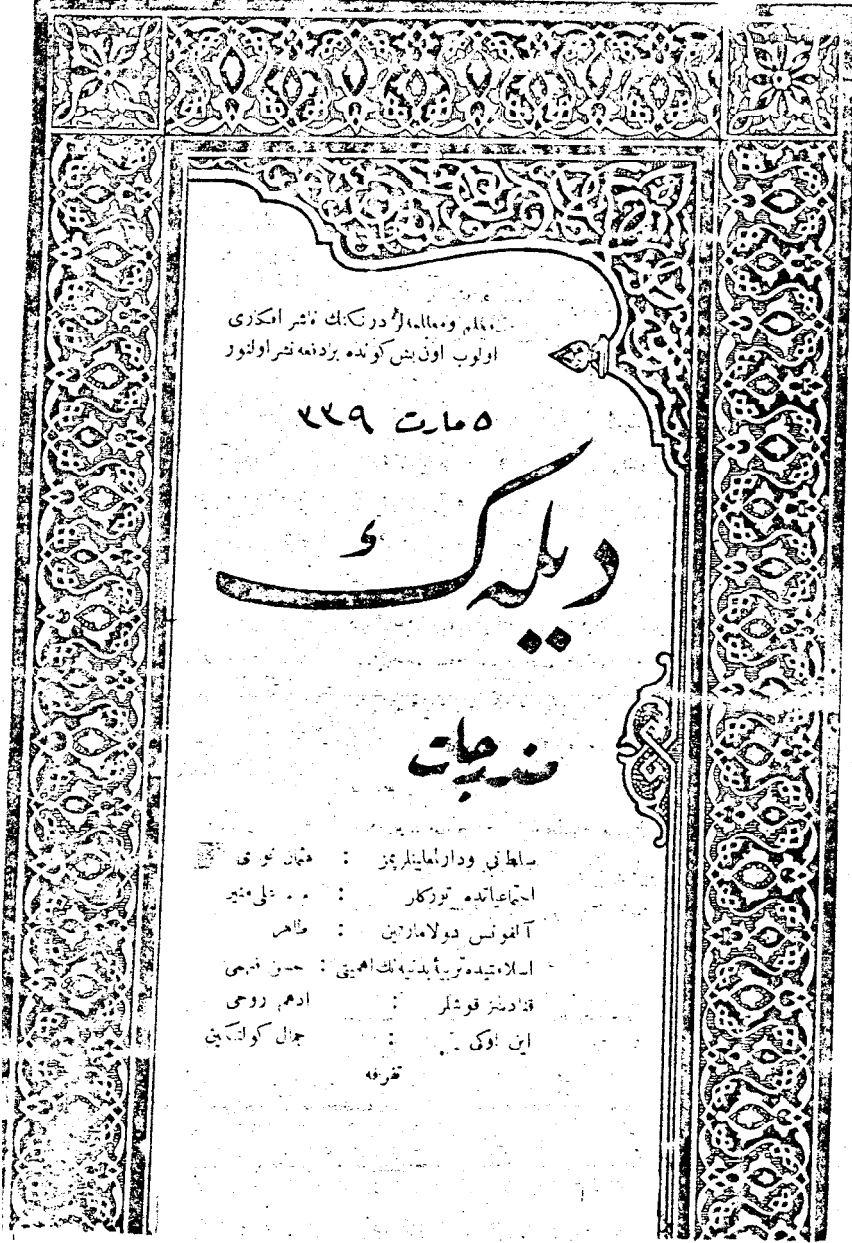 معلملر درنكنك ناشر افكاری
اولوب اون بش كونده بر دفعه نشر اولنور
٥ مارت ٣٣٩
دیله ك
مندرجات
سلطانی ودارالمعلمینلریمز : نوری
اجتماعیاتده توركلر : علی منیر
آلفونس دولامارتین : طاهر
اسلامیتده تربیۀ بدنیه نك اهمیتی : حسن فهمی
قنادسز قوشلر : ادهم روحی
این اوكی : جمال كولتكین
تفرقه